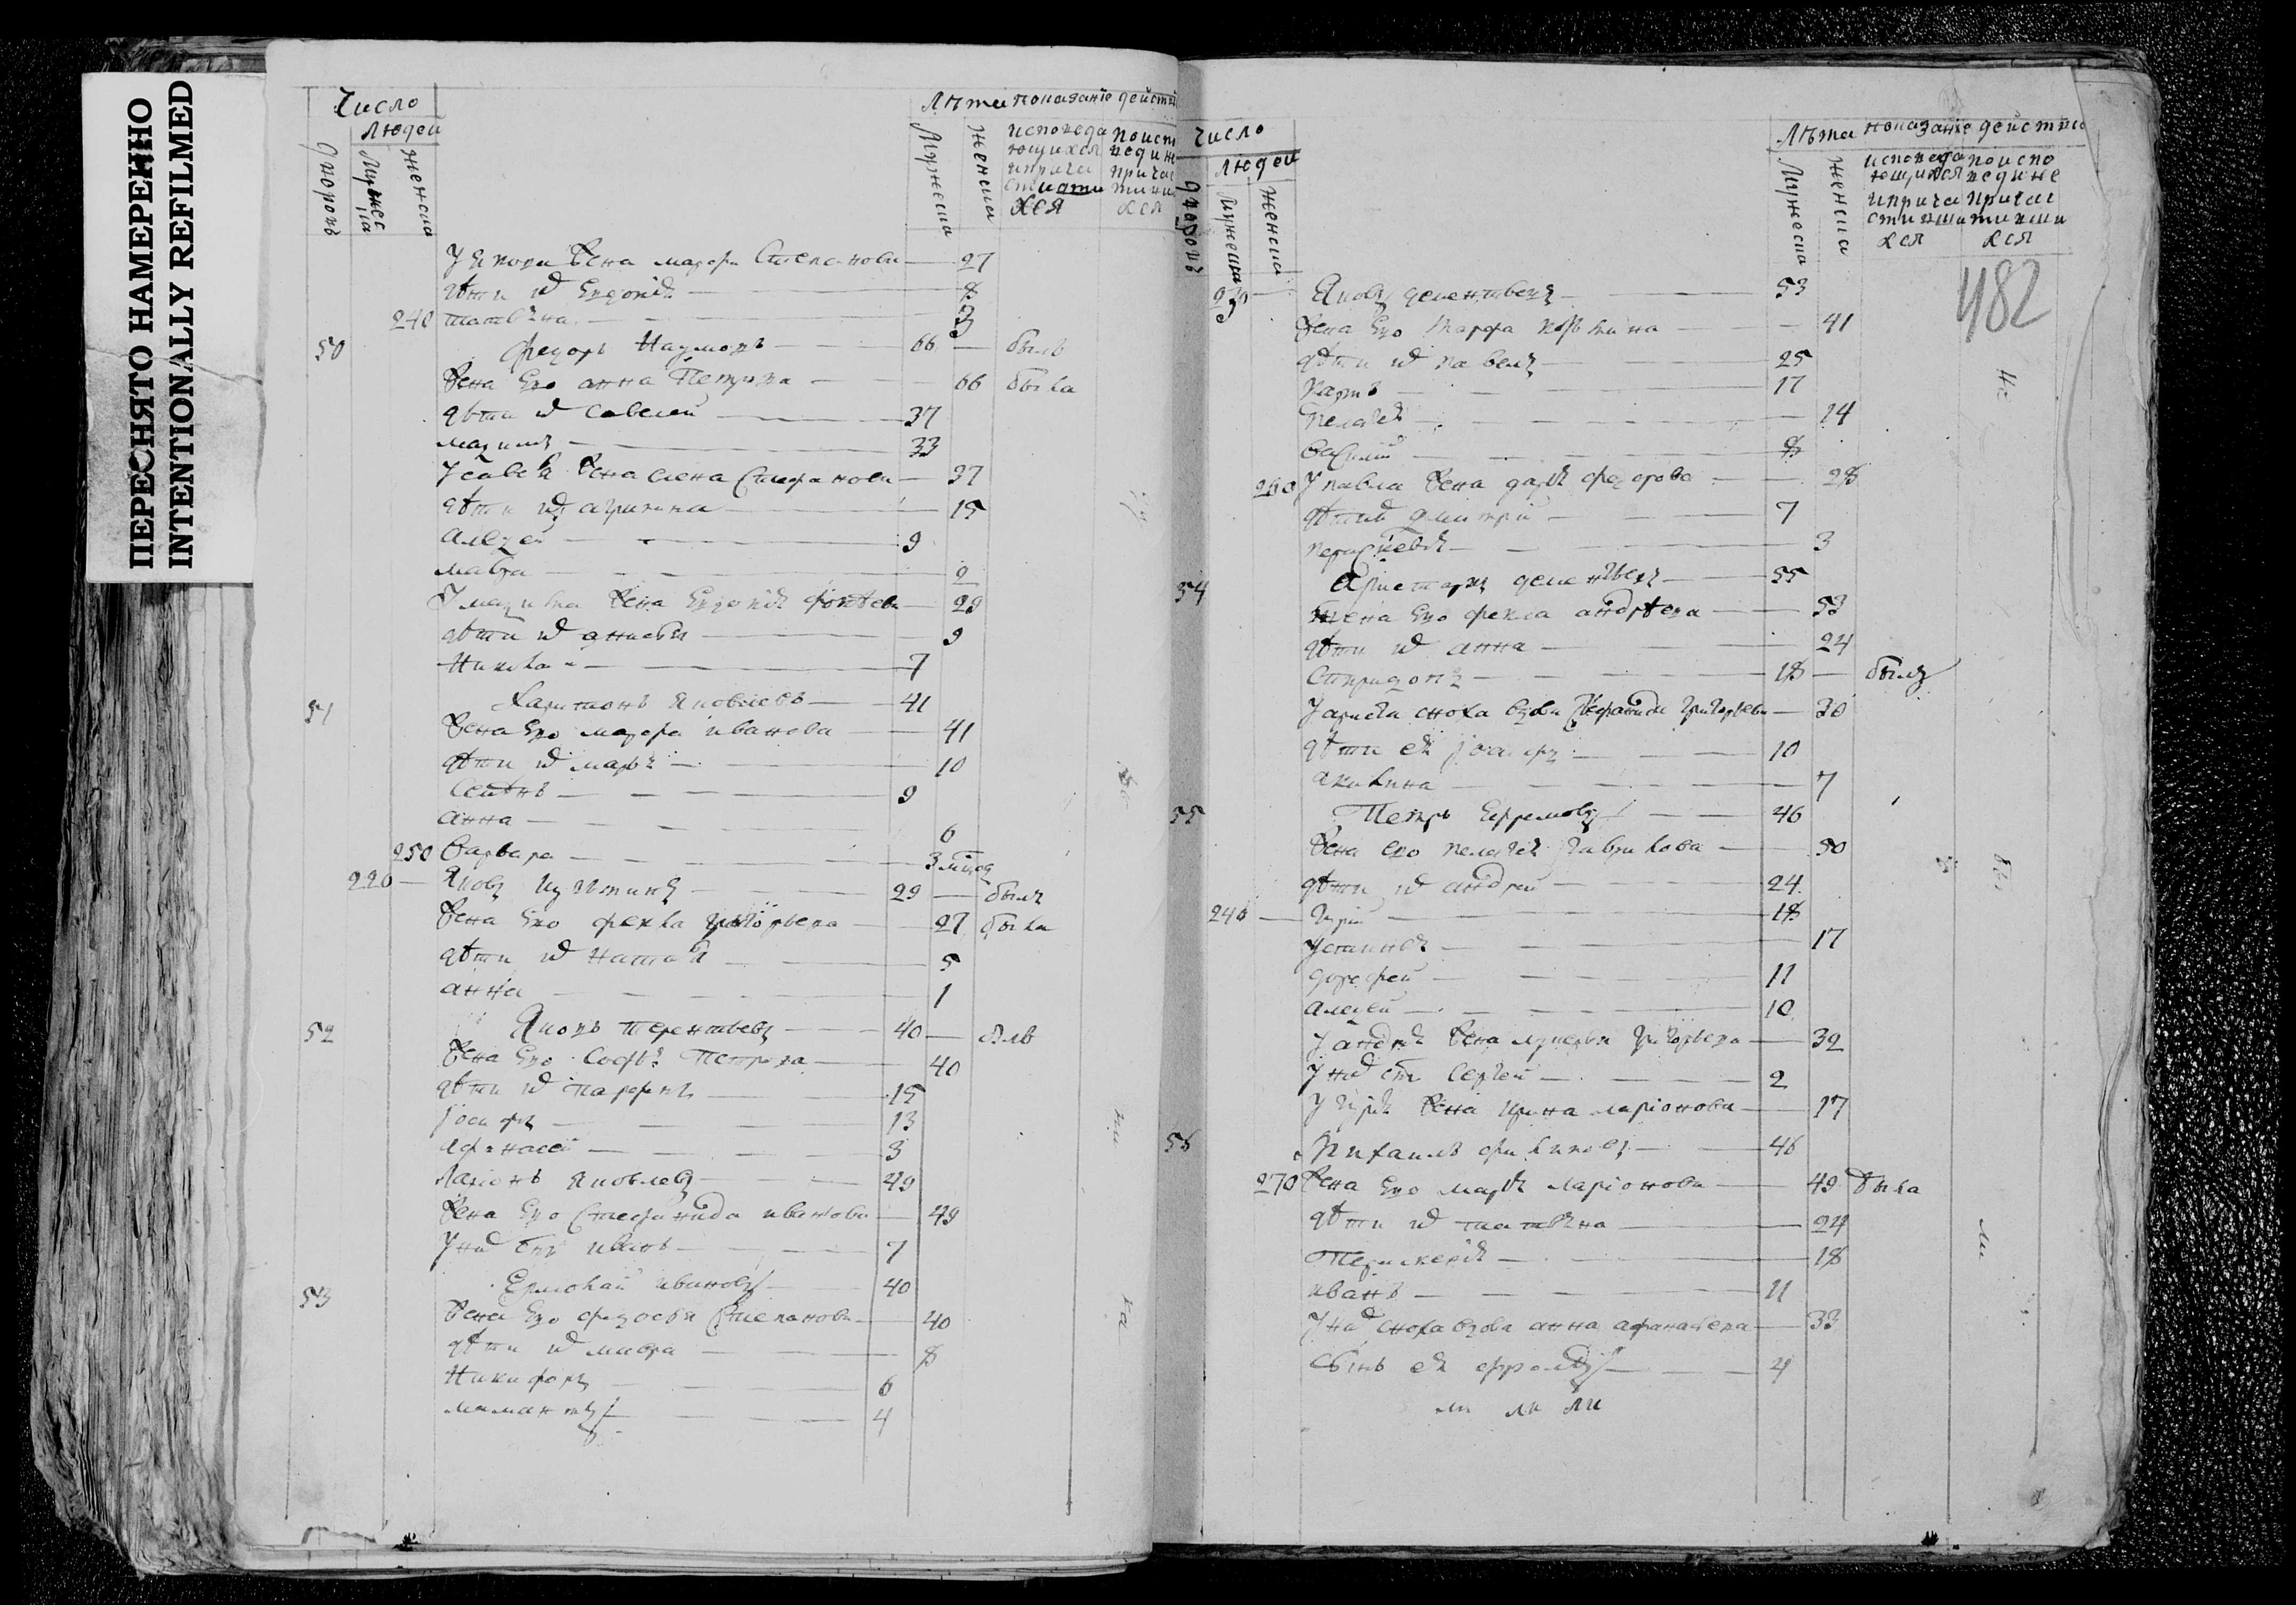 ПЕРЕСНЯТО НАМЕРЕННО
INTENTIONALLY REFILMED
Число
Людей
Дворовъ
Мужеска
Женска
Лѣта показанїе действ
Мужеска
Женска
исповеда
ющихся
и прича
стивши
хся
жена матрена Степанова 27
дѣти их Евдокия 8
240 татияна 3
50 Федоръ Наумовъ 66 былъ
жена Его анна Петрова 66 была
дѣти их Савелей 37
максимъ 33
У савелья жена елена Стефанова 37
дѣти их агрипина 15
Алексей 9
мавра 2
У максима жена Евдокия фокеева 29
дѣти их анисья 9
Никола 7
51 Харитонъ Яковлевъ 41
жена Его иванова 41
дѣти их марья 10
Семенъ 9
анна 6
250 Варвара 3 мѣсец
220 Яковъ 29 былъ
жена Его фекла григорьева 27 была
дѣти их Наталья 5
анна 1
52 Яковъ терентьевъ 40 былъ
жена Его Софья Петрова 40
дѣти их парфенъ 15
Iосифъ 13
афонасей 3
Ларионъ Яковлевъ 49
жена Его Стефанида иванова 49
У них сынъ иванъ 7
53 Ермолай ивановъ 40
жена Его федосья Степанова 40
дѣти их мавра 8
Никифоръ 6
4
Число
Людей
Дворовъ
Мужеска
Женска
Лѣта показанїе действи
Мужеска
Женска
исповеда
ющихся
и прича
стивши
хся
поиспо
ведине
причас
тивши
хся
482
230 Яковъ дементьевъ 53
жена Его Марфа 41
дѣти их павелъ 25
карпъ 17
пелагея 14
Василий 8
260 У павла жена дарья федорова 28
дѣти их дмитрий 7
3
54 Аристархъ дементьевъ 55
жена Его фекла андреева 53
дѣти их анна 24
Спиридонъ 18 былъ
сноха вдова Стефанида григорьева 30
дѣти ея Iосифъ 10
акилина 7
55 Петръ Ефремовъ 46
жена его пелагея гаврилова 50
дѣти их андрей 24
240 гурий 18
Устинья 17
дорофей 11
алексей 10
У андрея жена григорьева 32
У них сынъ Сергей 2
У гурия жена ирина ларионова 17
56 Михаилъ филиповъ 46
270 жена Его марья ларионова 49 была
дѣти их татияна 24
18
иванъ 11
У них сноха вдова анна афанасьева 33
Сынъ ея 4